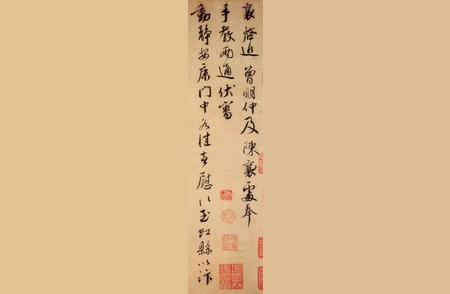 襄啓近 曾明仲及 陳襄處奉
手教兩通伏審
動靜安康門中各佳喜慰
以至虹縣以汴